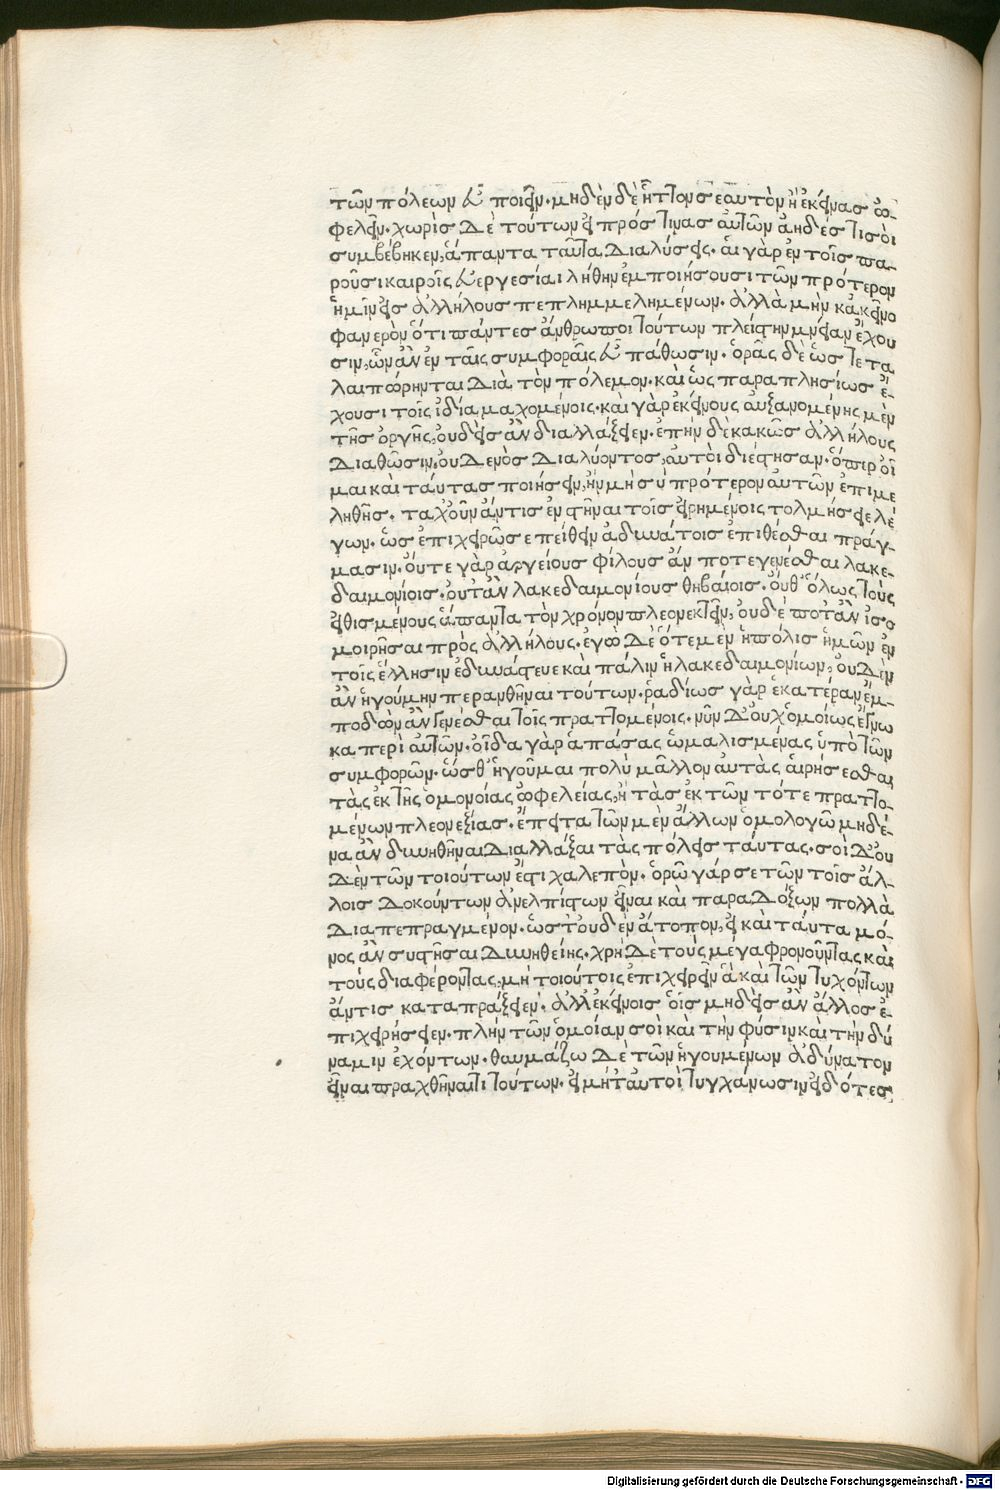 τῶν πόλεων εὖ ποιεῖν. μηδὲν δὲ ἧττον σεαυτὸν ἢ ἐκείνας ὠ-
φελεῖν. χωρὶς δὲ τούτων εἰ πρός τινας αὐτῶν ἀηδές τί σοι
συμβέβηκεν, ἅπαντα ταῦτα διαλύσεις. αἱ γὰρ ἐν τοῖς πα-
ροῦσι καιροῖς εὐεργεσίαι λήθην ἐμποιήσουσι τῶν πρότερον
ἡμῖν εἰς ἀλλήλους πεπλημμελημένων. ἀλλὰ μὴν κἀκεῖνο
φανερὸν ὅτι πάντες ἄνθρωποι τούτων πλείστην μνείαν ἔχου
σιν, ὧν ἂν ἐν ταῖς συμφοραῖς εὖ πάθωσιν. ὁρᾷς δὲ ὡς τετα
λαιπώρηνται διὰ τὸν πόλεμον. καὶ ὡς παραπλησίως ἔ-
χουσι τοῖς ἰδίᾳ μαχομένοις. καὶ γὰρ ἐκείνους αὐξανομένης μὲν
τῆς ὀργῆς, οὐδεὶς ἂν διαλλάξειεν. ἐπὴν δὲ κακῶς ἀλλήλους
διαθῶσιν, οὐδενὸς διαλύοντος, αὐτοὶ διέστησαν. ὅπερ οἶ
μαι καὶ ταύτας ποιήσειν, ἢν μὴ σὺ πρότερον αὐτῶν ἐπιμε
ληθῇς. τάχ' οὖν ἄν τις ἐνστῆναι τοῖς εἰρημένοις τολμήσειε λέ
γων. ὡς ἐπιχειρῶ σε πείθειν ἀδυνάτοις ἐπιθέσθαι πράγ-
μασιν. οὔτε γὰρ ἀργείους φίλους ἄν ποτε γενέσθαι λακε-
δαιμονίοις. οὔτ' ἂν λακεδαιμονίους θηβαίοις. οὔθ' ὅλως τοὺς
εἰθισμένους ἅπαντα τὸν χρόνον πλεονεκτεῖν, οὐδέποτ' ἂν ἰσο
μοιρῆσαι πρὸς ἀλλήλους. ἐγὼ δὲ ὅτε μὲν ἡ πόλις ἡμῶν ἐν
τοῖς ἕλλησιν ἐδυνάστευε καὶ πάλιν ἡ λακεδαιμονίων, οὐδὲν
ἂν ἡγούμην περανθῆναι τούτων. ῥᾳδίως γὰρ ἑκατέραν ἐμ-
ποδὼν ἂν γενέσθαι τοῖς πραττομένοις. νῦν δ' οὐχ ὁμοίως ἔγνω
κα περὶ αὐτῶν. οἶδα γὰρ ἁπάσας ὡμαλισμένας ὑπὸ τῶν
συμφορῶν. ὥσθ' ἡγοῦμαι πολὺ μᾶλλον αὐτὰς αἱρήσεσθαι
τὰς ἐκ τῆς ὁμονοίας ὠφελείας, ἢ τὰς ἐκ τῶν τότε πραττο-
μένων πλεονεξίας. ἔπειτα τῶν μὲν ἄλλων ὁμολογῶ μηδέ-
να ἂν δυνηθῆναι διαλλάξαι τὰς πόλεις ταύτας. σοὶ δ' οὐ
δὲν τῶν τοιούτων ἐστι χαλεπὸν. ὁρῶ γάρ σε τῶν τοῖς ἄλ-
λοις δοκούντων ἀνελπίστων εἶναι καὶ παραδόξων πολλὰ
διαπεπραγμένον. ὥστ' οὐδὲν ἄτοπον, εἰ καὶ ταῦτα μό-
νος ἂν συστῆσαι δυνηθείης. χρὴ δὲ τοὺς μέγα φρονοῦντας καὶ
τοὺς διαφέροντας, μὴ τοιούτοις ἐπιχειρεῖν ἃ καὶ τῶν τυχόντων
ἄν τις καταπράξειεν. ἀλλ' ἐκείνοις οἷς μηδεὶς ἂν ἄλλος ἐ-
πιχειρήσειεν. πλὴν τῶν ὁμοίαν σοὶ καὶ τὴν φύσιν καὶ τὴν δύ
ναμιν ἐχόντων. θαυμάζω δὲ τῶν ἡγουμένων ἀδύνατον
εἶναι πραχθῆναί τι τούτων. εἰ μήτ' αὐτοὶ τυγχάνωσιν εἰδότες
Digitalisierung gefördert durch die Deutsche Forschungsgemeinschaft - DFG